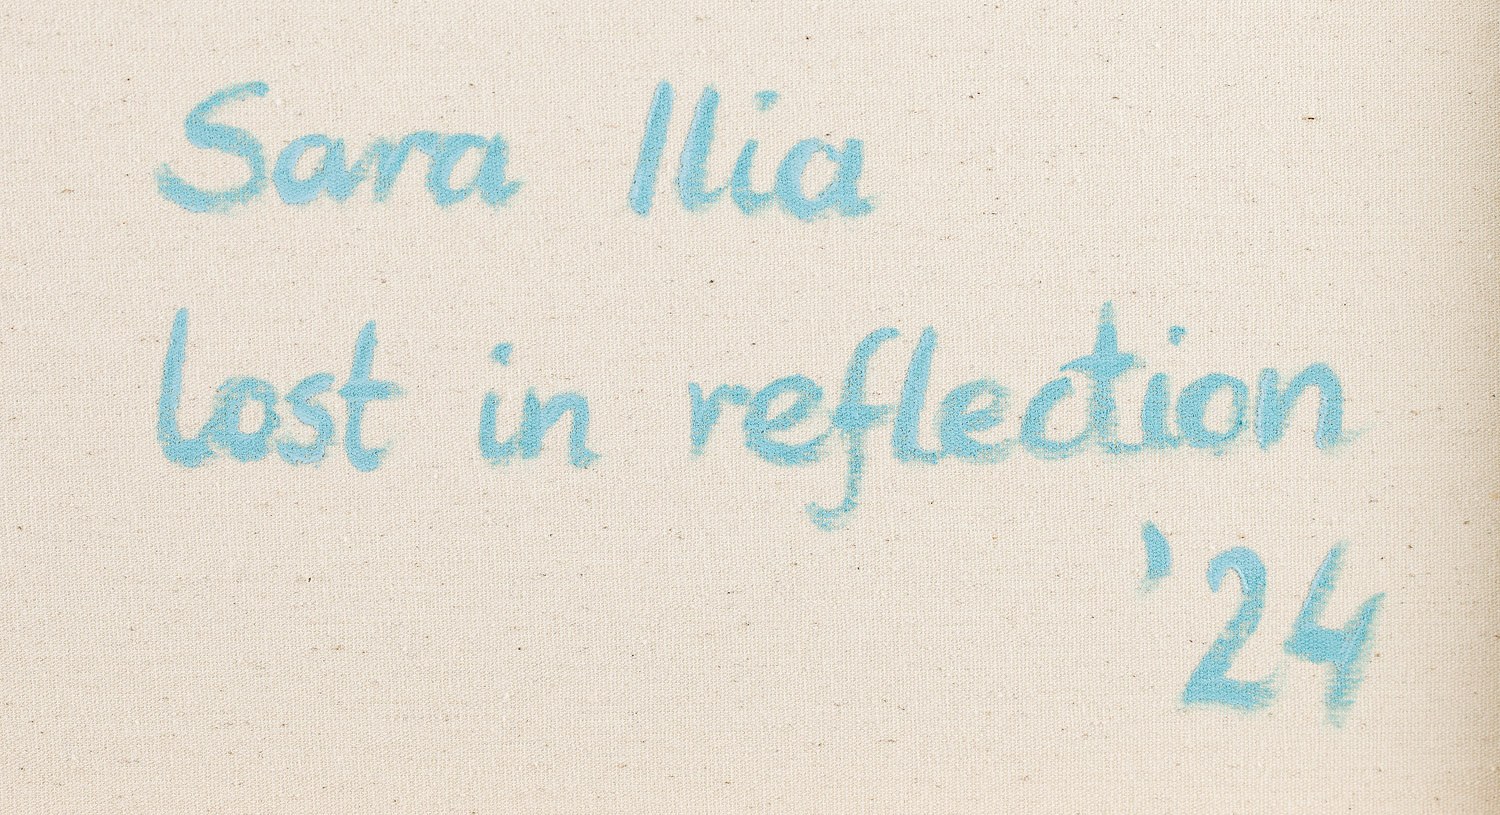 Sara Ilia
lost in reflection
'24